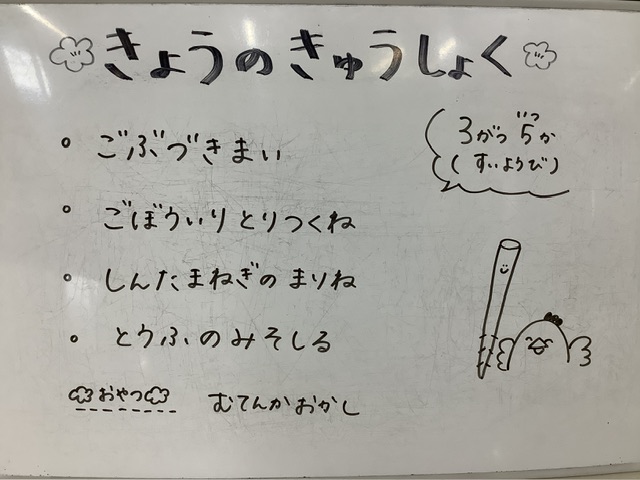 きょうのきゅうしょく
3がつ 5か
いつ
(すいようび)
ごぶづきまい
ごぼういりとりつくね
しんたまねぎのまりね
とうふのみそしる
おやつ むてんかおかし